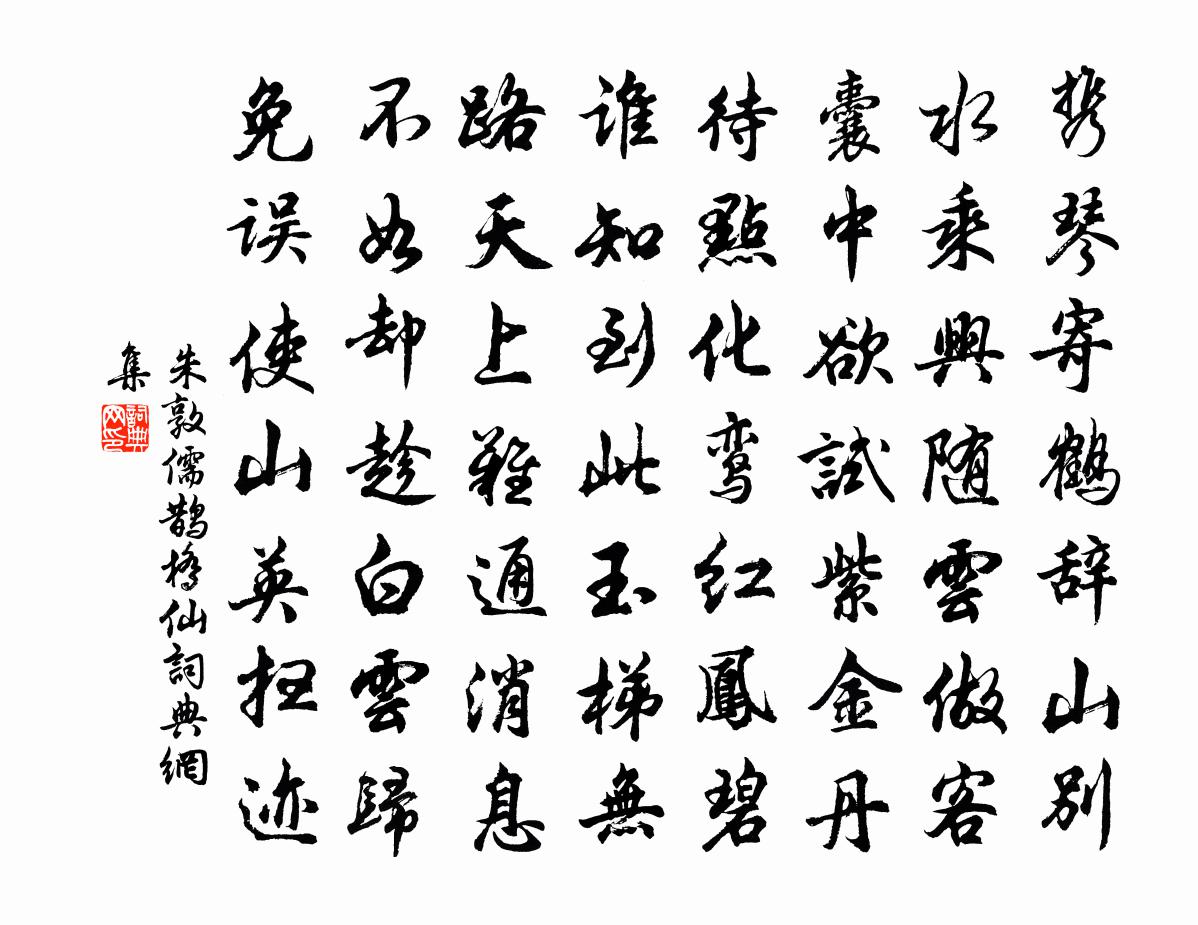 携琴寄鹤辞山别
水乘興随雲做客
囊中欲試紫金丹
待點化鸾红鳳碧
谁知到此玉梯無
路天上難通消息
不如却趁白雲歸
免误使山英扫迹
朱敦儒鹊橋仙詞典網
集
詞典
网印